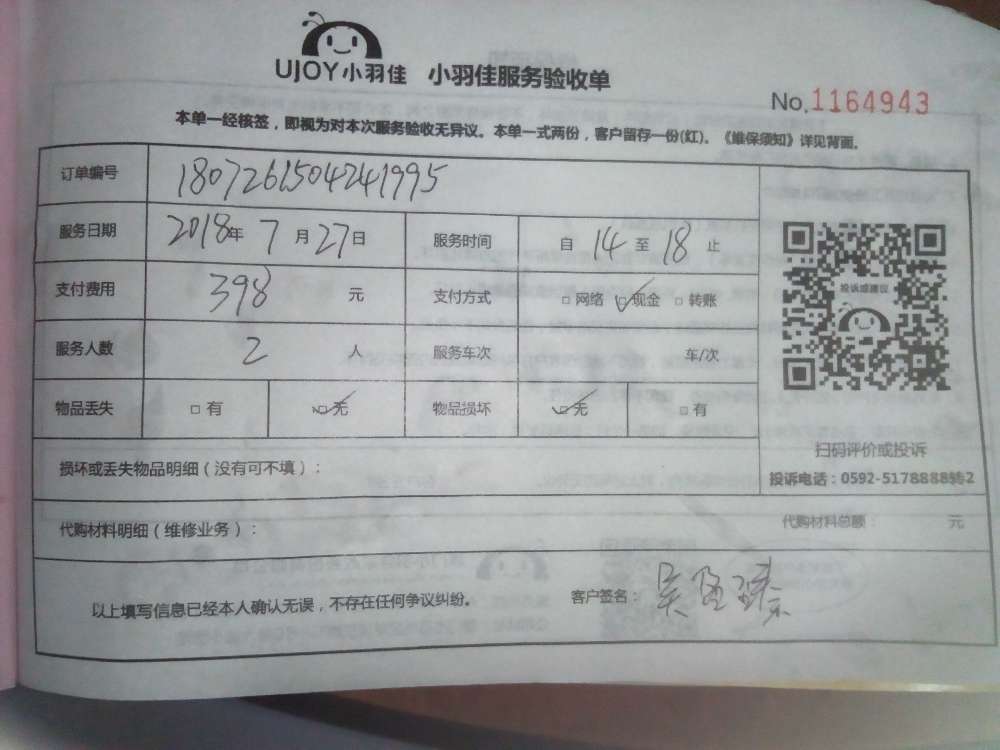 UJOY小羽佳 小羽佳服务验收单
No.1164943
本单一经核签，即视为对本次服务验收无异议。本单一式两份，客户留存一份(红)。《维保须知》详见背面。
订单编号 18072615042241995
服务日期 2018年 7 月 27 日 服务时间 自 14 至 18 止
支付费用 398 元 支付方式 □ 网络 ☑ 现金 □ 转账
投诉或建议
服务人数 2 人 服务车次 车/次
物品丢失 □ 有 ☑ 无 物品损坏 ☑ 无 □ 有
扫码评价或投诉
损坏或丢失物品明细（没有可不填）：
投诉电话：0592-5178888转2
代购材料明细（维修业务）： 代购材料总额： 元
以上填写信息已经本人确认无误，不存在任何争议纠纷。 客户签名：吴